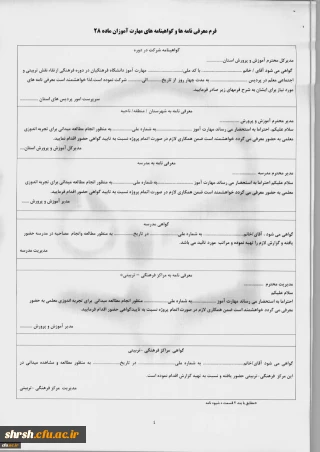 فرم معرفی نامه ها و گواهینامه های مهارت آموزان ماده ۲۸
گواهینامه شرکت در دوره
مدیرکل محترم آموزش و پرورش استان ...............
گواهی می شود آقای / خانم .................. با کد ملی .................. مهارت آموز دانشگاه فرهنگیان در دوره فرهنگی ارتقاء نقش تربیتی و
اجتماعی معلم در پردیس ............ به مدت چهار روز از تاریخ ............ الی ............ شرکت نموده است لذا خواهشمند است
مورد نیاز برای ایشان به شرح فرمهای زیر صادر فرمایید.
سرپرست امور پردیس های استان ............
معرفی نامه به شهرستان / منطقه/ ناحیه
مدیر محترم آموزش و پرورش ............
سلام علیکم. احتراما به استحضار می رساند مهارت آموز ............ به شماره ملی ............ به منظور انجام مطالعه میدانی برای تجربه اندوزی
معلمی به حضور معرفی می گردد خواهشمند است ضمن همکاری لازم در صورت اتمام پروژه نسبت به تایید گواهی حضور اقدام نمایید.
مدیرکل آموزش و پرورش استان...
معرفی نامه به مدرسه
مدیر محترم مدرسه ............
سلام علیکم. احتراما به استحضار می رساند مهارت آموز ............ به شماره ملی ............ به منظور انجام مطالعه میدانی برای تجربه اندوزی
معلمی به حضور معرفی می گردد خواهشمند است ضمن همکاری لازم در صورت اتمام پروژه نسبت به تایید گواهی حضور اقدام نمایید.
مدیر آموزش و پرورش ......
گواهی مدرسه
گواهی می شود : آقای /خانم ............ به شماره ملی ............ در تاریخ ............ به منظور مطالعه وانجام مصاحبه در مدرسه حضور
یافته و گزارش لازم را تهیه نموده و مراتب مورد تائید می باشد.
مدیریت مدرسه
معرفی نامه به مراکز فرهنگی - تربیتی*
مدیریت محترم ............
سلام علیکم
احتراما به استحضار می رساند مهارت آموز ............ به شماره ملی ............ به منظور انجام مطالعه میدانی برای تجربه اندوزی معلمی به حضور
معرفی می گردد خواهشمند است ضمن همکاری لازم در صورت اتمام پروژه نسبت به تاییدگواهی حضور اقدام نمایید.
مدیر آموزش و پرورش ......
گواهی مراکز فرهنگی -تربیتی
گواهی می شود آقای/خانم ............ به شماره ملی ............ در تاریخ ............ به منظور مطالعه و مشاهده میدانی در
این مرکز فرهنگی- تربیتی حضور یافته و نسبت به تهیه گزارش اقدام نموده است.
مدیریت مرکز فرهنگی - تربیتی
*مطابق با بند ۴ قسمت د شیوه نامه
shrsh.cfu.ac.ir
shrsh.cfu.ac.ir